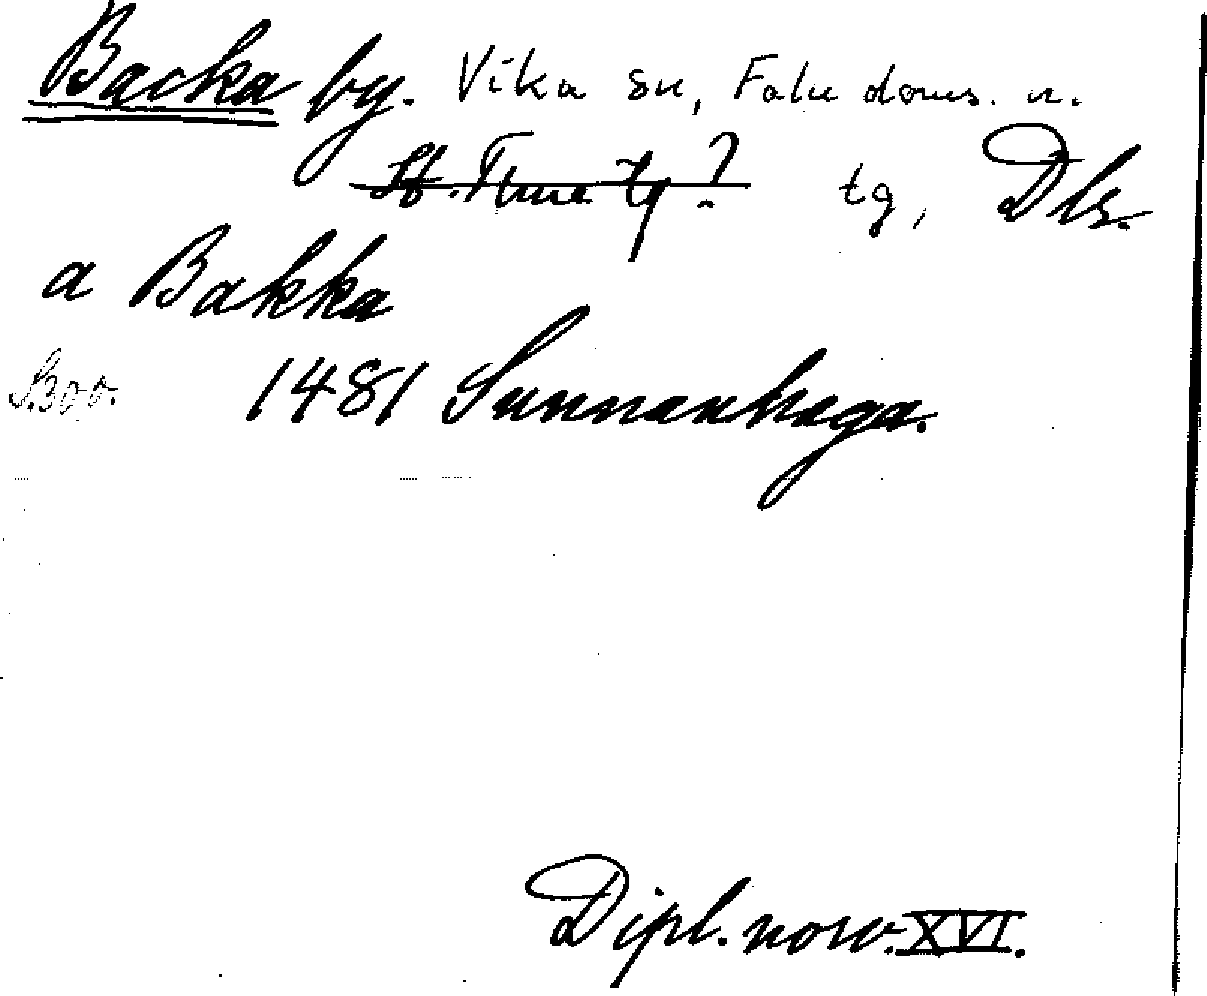 Backa by. Vika sn, Falu doms. n.
St. Tuna tg? tg, Dlr.
a Bakka
S. 300. 1481 Sunnanhaga.
Dipl. norv. XVI.